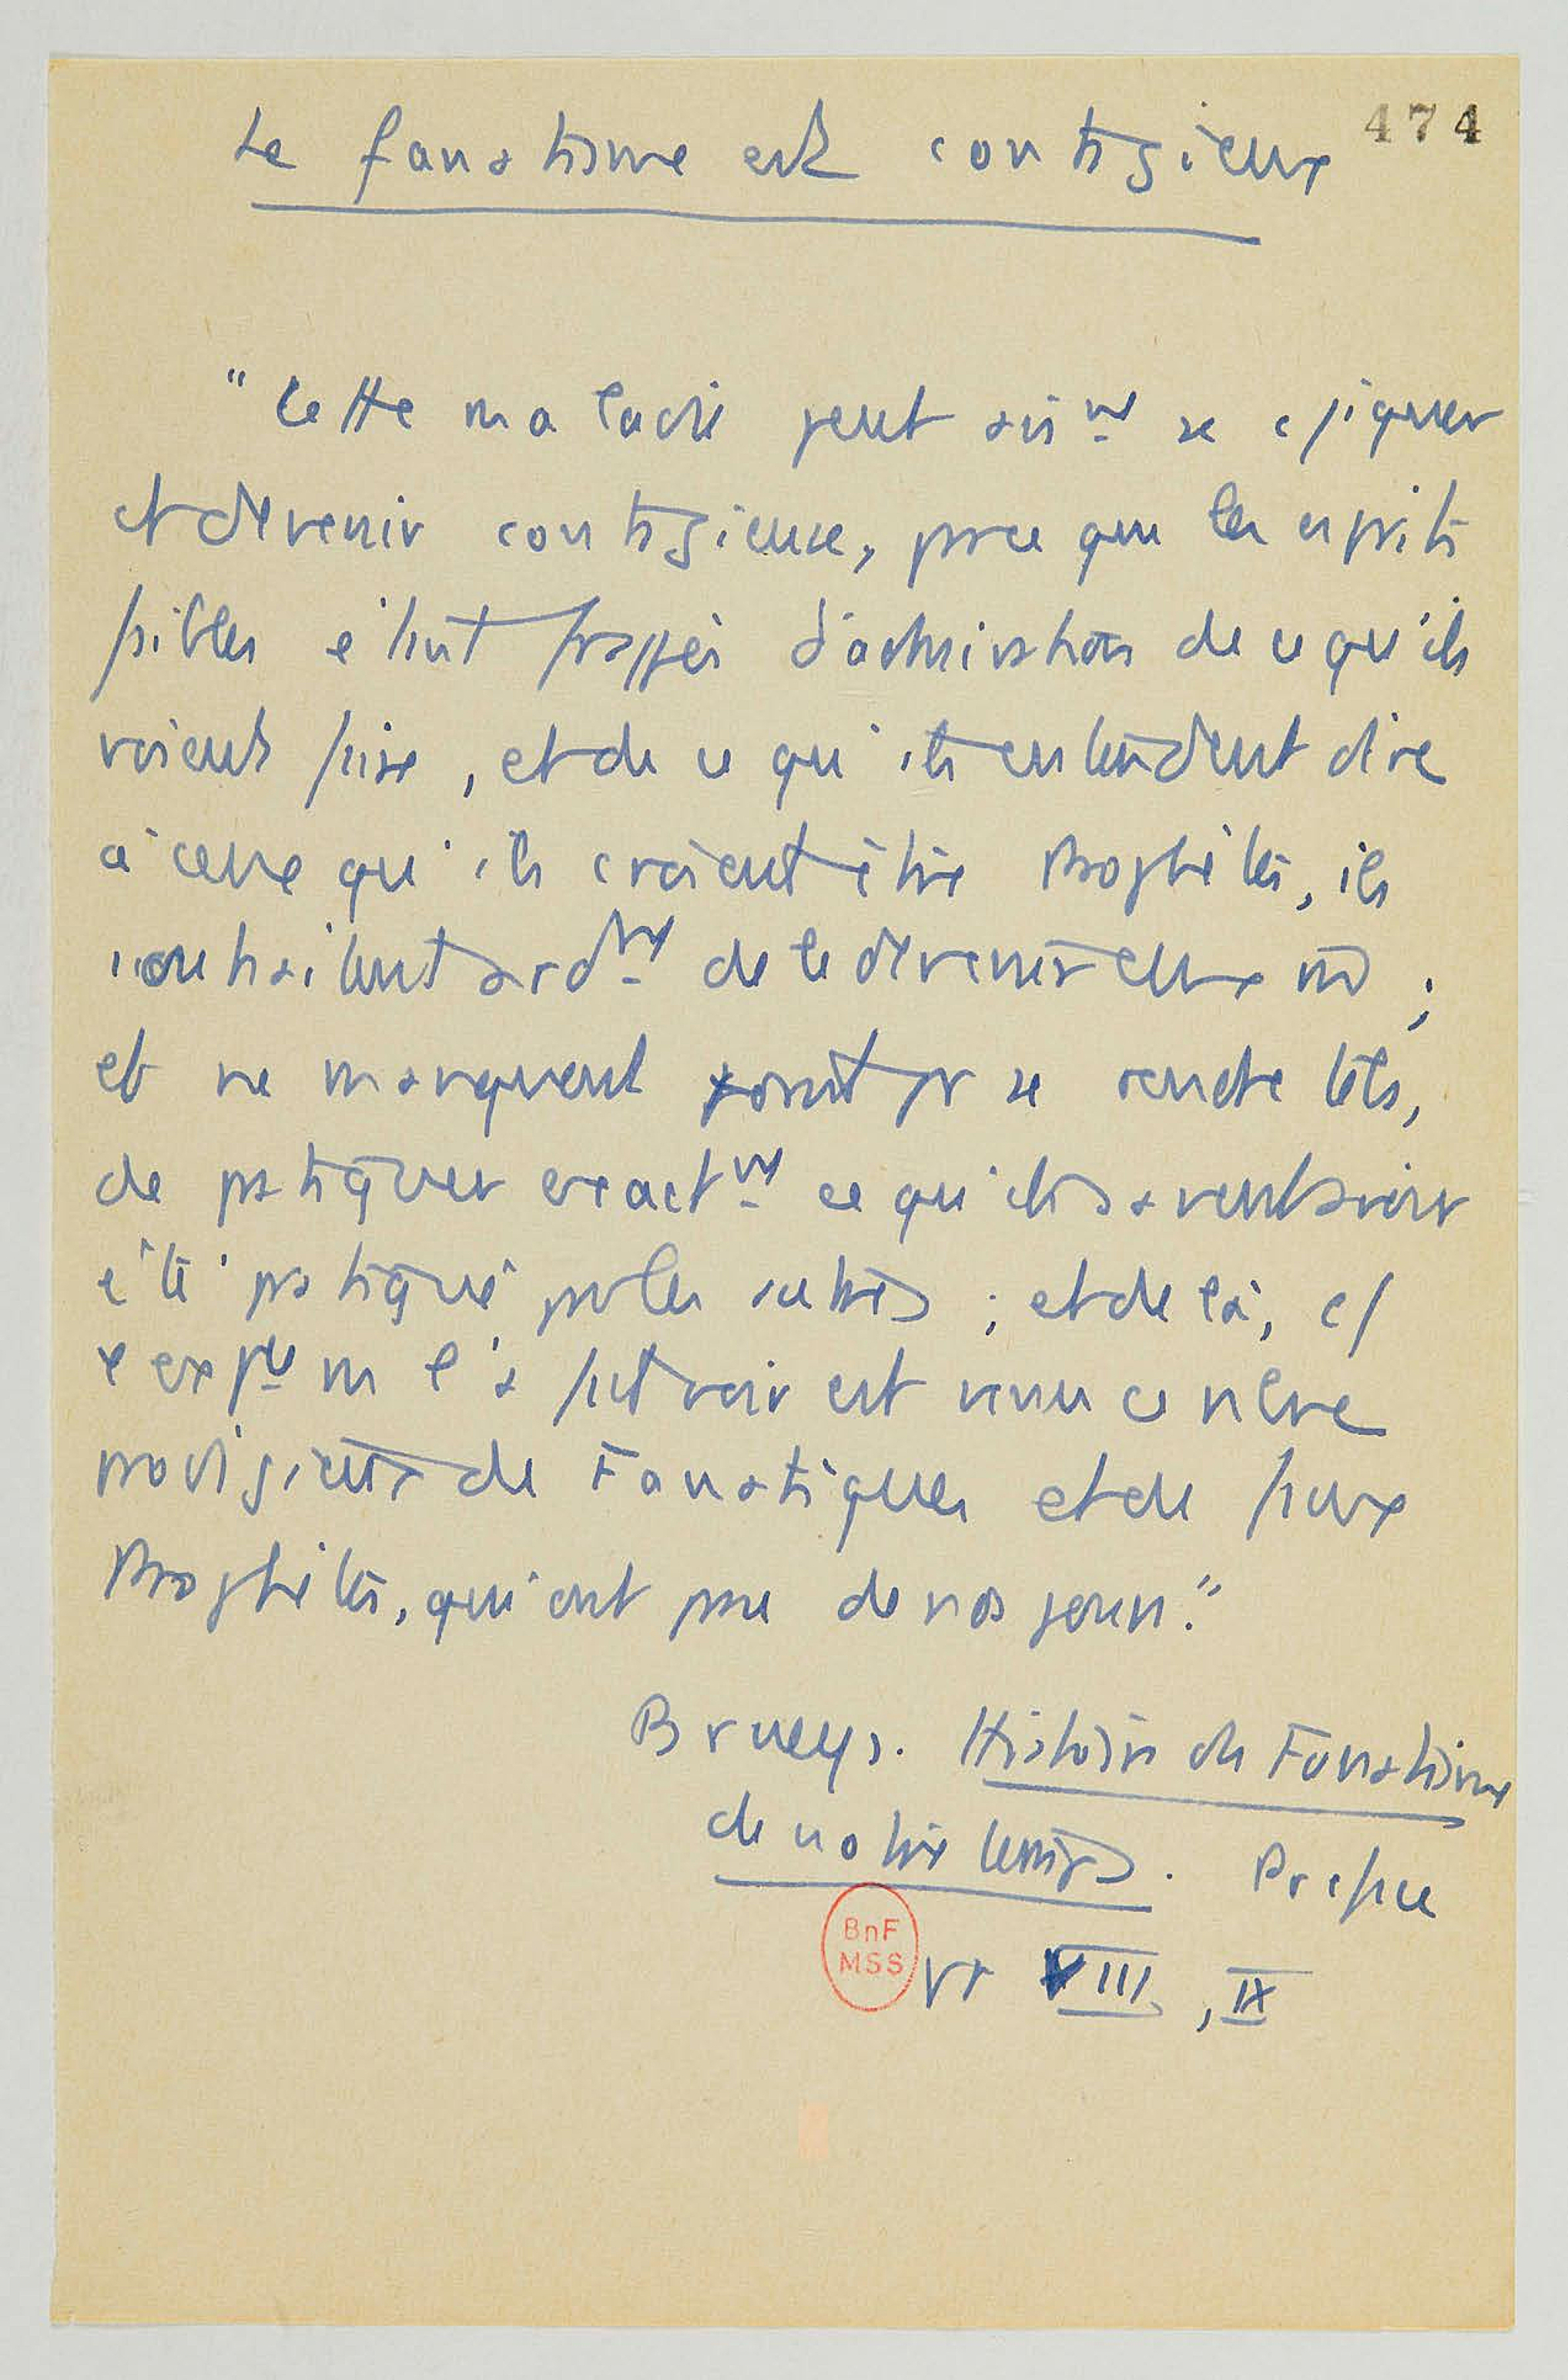 474
Le fanatisme est contagieux
"Cette maladie peut aismt se cquer
et devenir contagieuse, parce que les esprits
faibles étant frappés d'admiration de ce qu'ils
voient faire, et de ce qu'ils entendent dire
à ceux qu'ils croient être Prophètes, ils
souhaitent ardmt de le devenir eux m ;
et ne manquent point pr se rendre tels,
de pratiquer exactmt ce qu'ils savent avoir
été pratiqué par les autres ; et de là, c/
l'expce ns l'a fait voir est venu ce nbre
prodigieux de Fanatiques et de faux
Prophètes, qui ont paru de nos jours."
Brueys. Histoire du Fanatisme
de notre temps. Préface
BnF
MSS
VIII, IX